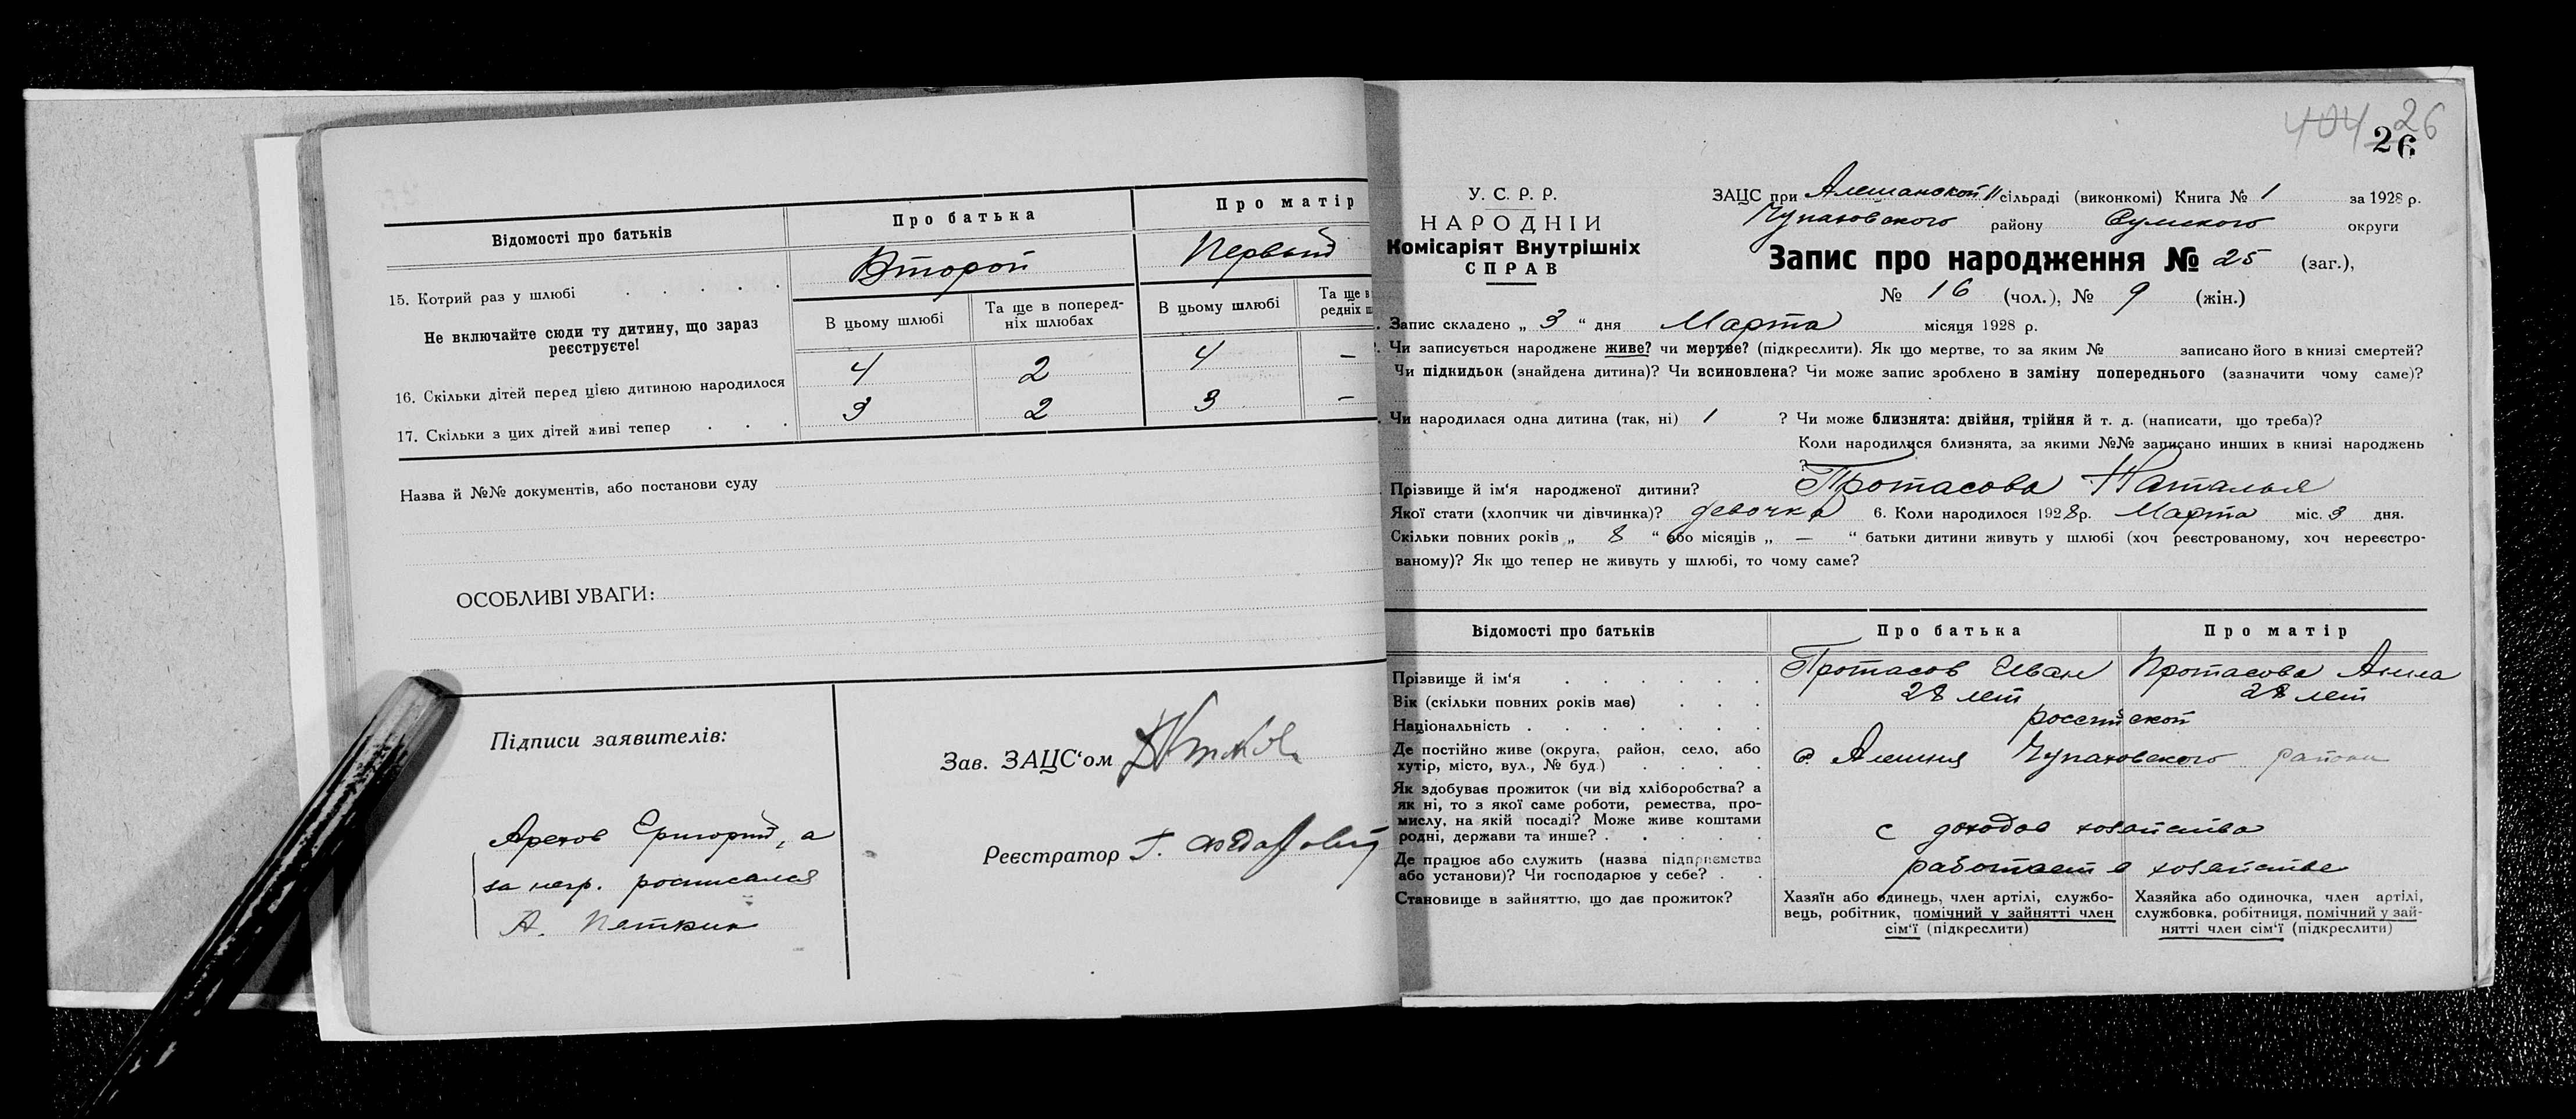 Відомості про батьків
Про батька
Про матір
15. Котрий раз у шлюбі
Второй
Первый
Не включайте сюди ту дитину, що зараз
реєструєте!
В цьому шлюбі
Та ще в поперед-
ніх шлюбах
В цьому шлюбі
Та ще в
редніх ш
16. Скільки дітей перед цією дитиною народилося
4
2
4
—
17. Скільки з цих дітей живі тепер
3
2
3
—
Назва й №№ документів, або постанови суду
ОСОБЛИВІ УВАГИ:
Підписи заявителів:
Григорий, а
за негр. росписался
А. Петкин
Зав. ЗАЦС‘ом
Реєстратор Г.
404 26
26
У. С. Р. Р.
НАРОДНІЙ
Комісаріят Внутрішніх
СПРАВ
ЗАЦС при Алешанской сільраді (виконкомі) Книга № 1 за 1928 р.
Чупаховского району Сумского округи
Запис про народження № 25 (заг.),
№ 16 (чол.), № 9 (жін.)
Запис складено „ 3 “ дня Марта місяця 1928 р.
Чи записується народжене живе? чи мертве? (підкреслити). Як що мертве, то за яким № записано його в книзі смертей?
Чи підкидьок (знайдена дитина)? Чи всиновлена? Чи може запис зроблено в заміну попереднього (зазначити чому саме)?
Чи народилася одна дитина (так, ні) 1 ? Чи може близнята: двійня, трійня й т. д. (написати, що треба)?
Коли народилися близнята, за якими №№ записано инших в книзі народжень
?
Прізвище й ім‘я народженої дитини? Протасова Наталья
Якої стати (хлопчик чи дівчинка)? девочка 6. Коли народилося 1928 р. Марта міс. 3 дня.
Скільки повних років „ 8 “ або місяців „ — “ батьки дитини живуть у шлюбі (хоч реєстрованому, хоч нереєстро-
ваному)? Як що тепер не живуть у шлюбі, то чому саме?
Відомості про батьків
Про батька
Про матір
Прізвище й ім‘я
Протасов Иван
Протасова Анна
Вік (скільки повних років має)
28 лет
28 лет
Національність
российской
Де постійно живе (округа, район, село, або
хутір, місто, вул., № буд.)
с. Алешня Чупаховского района
Як здобуває прожиток (чи від хліборобства? а
як ні, то з якої саме роботи, ремества, про-
мислу, на якій посаді? Може живе коштами
родні, держави та инше?
с доходов хозайства
Де працює або служить (назва підприємства
або установи)? Чи господарює у себе?
работает в хозайстве
Становище в зайняттю, що дає прожиток?
Хазяїн або одинець, член артілі, службо-
вець, робітник, помічний у зайнятті член
сім‘ї (підкреслити)
Хазяйка або одиночка, член артілі,
службовка, робітниця, помічний у зай-
нятті член сім‘ї (підкреслити)